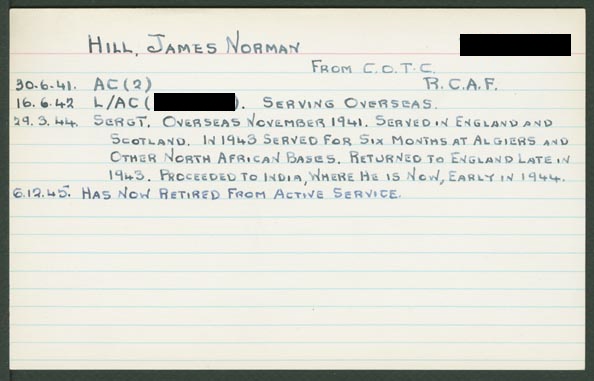 HILL, JAMES NORMAN
FROM C.O.T.C.
30.6.41. AC (2) R.C.A.F.
16.6.42 L/AC ( ). SERVING OVERSEAS.
29.3.44. SERGT. OVERSEAS NOVEMBER 1941. SERVED IN ENGLAND AND
SCOTLAND. IN 1943 SERVED FOR SIX MONTHS AT ALGIERS AND
OTHER NORTH AFRICAN BASES. RETURNED TO ENGLAND LATE IN
1943. PROCEEDED TO INDIA, WHERE HE IS NOW, EARLY IN 1944.
6.12.45. HAS NOW RETIRED FROM ACTIVE SERVICE.